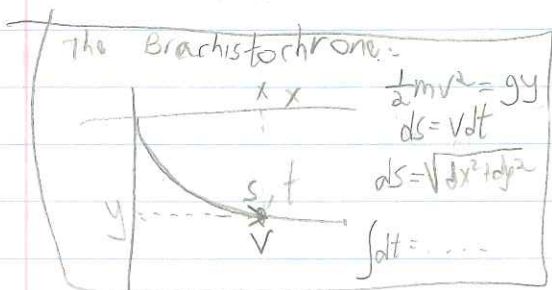 The Brachistochrone:-
x x
½mv² = gy
ds = Vdt
ds = √dx²+dy²
s, t
y
V
∫dt = .....